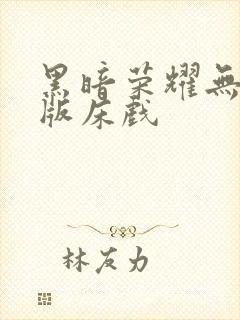 黑暗荣耀無
版床戲
林友力